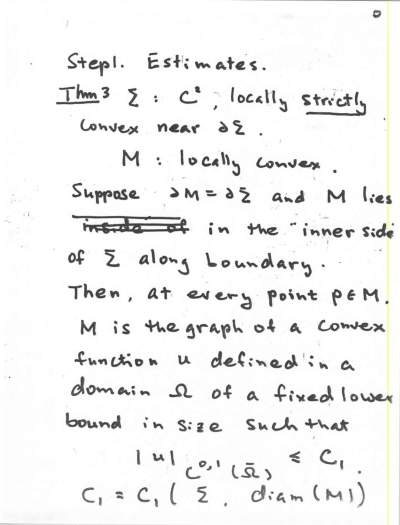 Step1. Estimates.
Thm 3 Σ : C², locally strictly
convex near ∂Σ.
M : locally convex.
Suppose ∂M = ∂Σ and M lies
inside of in the "inner side
of Σ along boundary.
Then, at every point p ∈ M.
M is the graph of a convex
function u defined in a
domain Ω of a fixed lower
bound in size such that
|u|_{C^{0,1}(Ω̄)} ≤ C₁.
C₁ = C₁ ( Σ, diam (M))